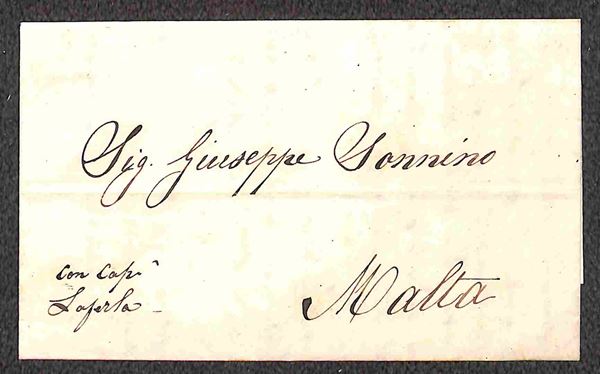 Sig. Giuseppe Sonnino
con cap.n
Laferla
Malta